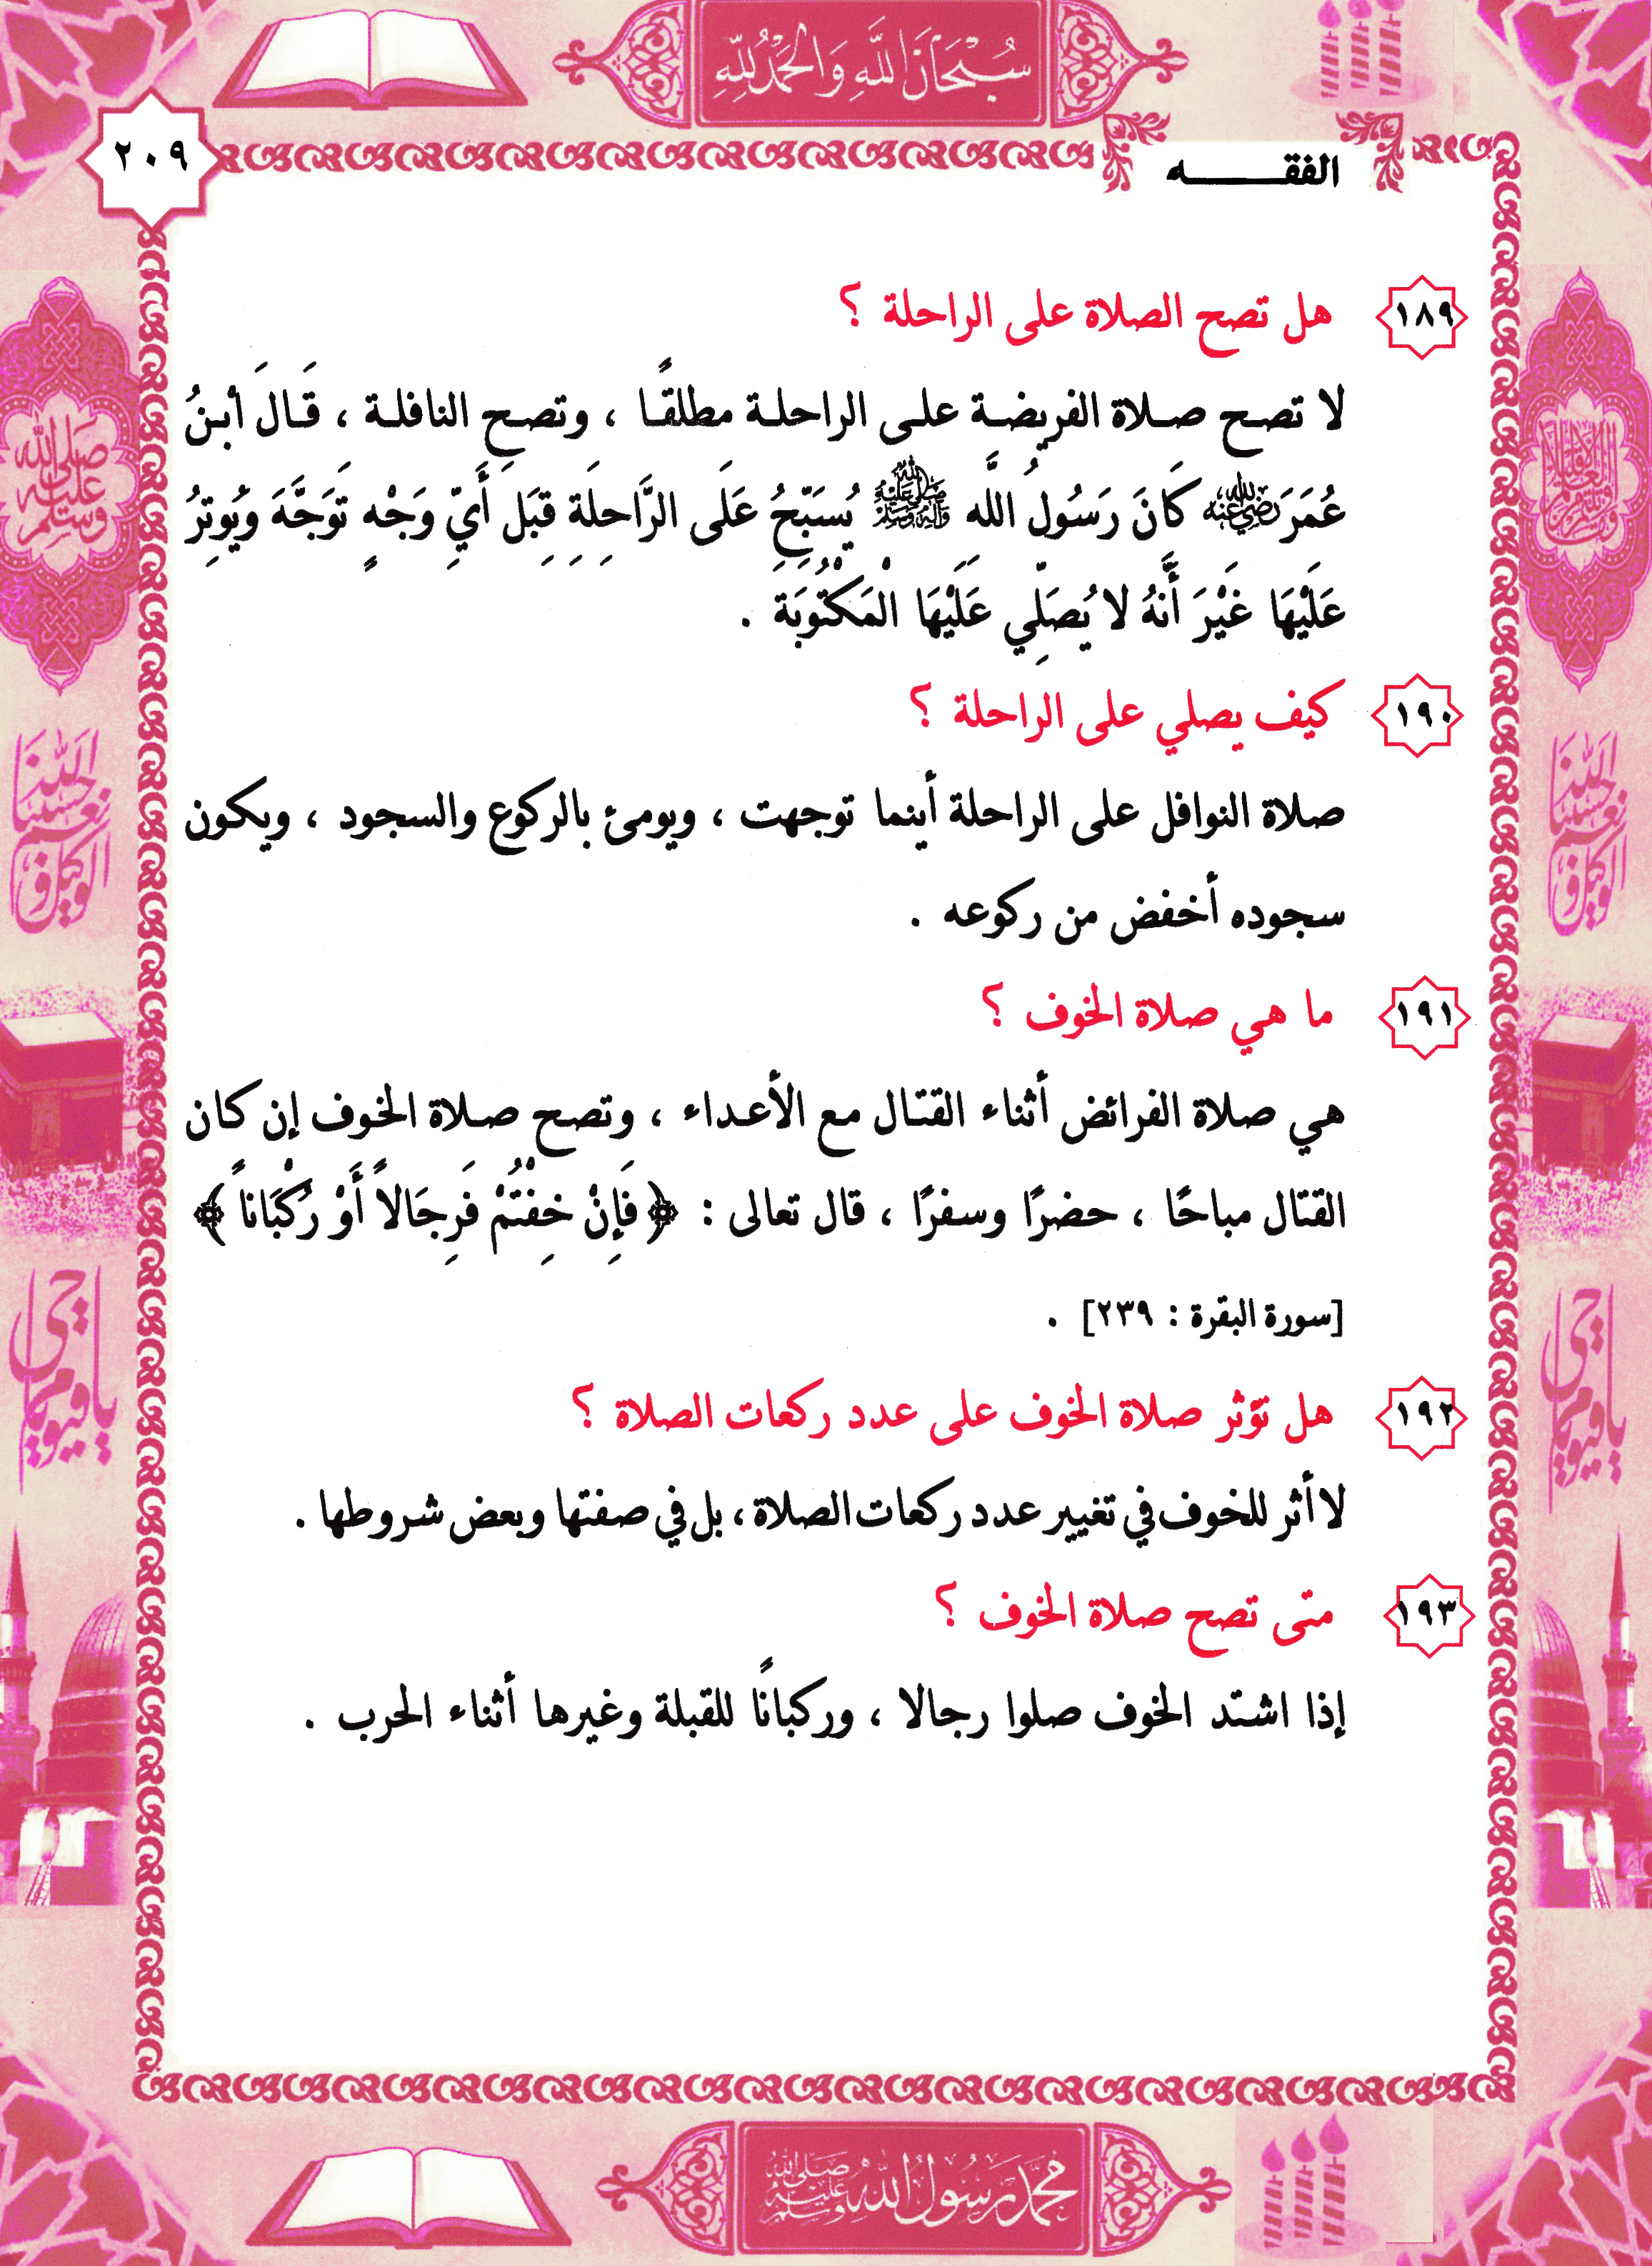 سُبْحَانَ اللَّهِ وَالْحَمْدُ لِلَّهِ
٢٠٩
الفقـــــــه
١٨٩ هل تصح الصلاة على الراحلة ؟
لا تصـح صـلاة الفريضـة علـى الراحلـة مطلقًـا ، وتصـح النافلـة ، قَـالَ أبـنُ
عُمَرَ رضي الله عنه كَانَ رَسُولُ اللَّه صلى الله عليه وآله وسلم يُسَبِّحُ عَلَى الرَّاحِلَةِ قِبَلَ أَيِّ وَجْهٍ تَوَجَّهَ وَيُوتِرُ
عَلَيْهَا غَيْرَ أَنَّهُ لا يُصَلِّي عَلَيْهَا الْمَكْتُوبَةَ .
١٩٠ كيف يصلي على الراحلة ؟
صلاة النوافل على الراحلة أينما توجهت ، ويومئ بالركوع والسجود ، ويكون
سجوده أخفض من ركوعه .
١٩١ ما هي صلاة الخوف ؟
هي صلاة الفرائض أثناء القتـال مع الأعـداء ، وتصـح صـلاة الخوف إن كان
القتال مباحًا ، حضرًا وسفرًا ، قال تعالى : ﴿ فَإِنْ خِفْتُمْ فَرِجَالاً أَوْ رُكْبَاناً ﴾
[سورة البقرة : ٢٣٩] .
١٩٢ هل تؤثر صلاة الخوف على عدد ركعات الصلاة ؟
لا أثر للخوف في تغيير عدد ركعات الصلاة ، بل في صفتها وبعض شروطها .
١٩٣ متى تصح صلاة الخوف ؟
إذا اشتد الخوف صلوا رجالا ، وركبانًا للقبلة وغيرها أثناء الحرب .
محمد رسول الله صلى الله عليه وسلم
صلى الله عليه وسلم
حسبنا الله ونعم الوكيل
حسبنا الله ونعم الوكيل
يا حي يا قيوم
يا حي يا قيوم